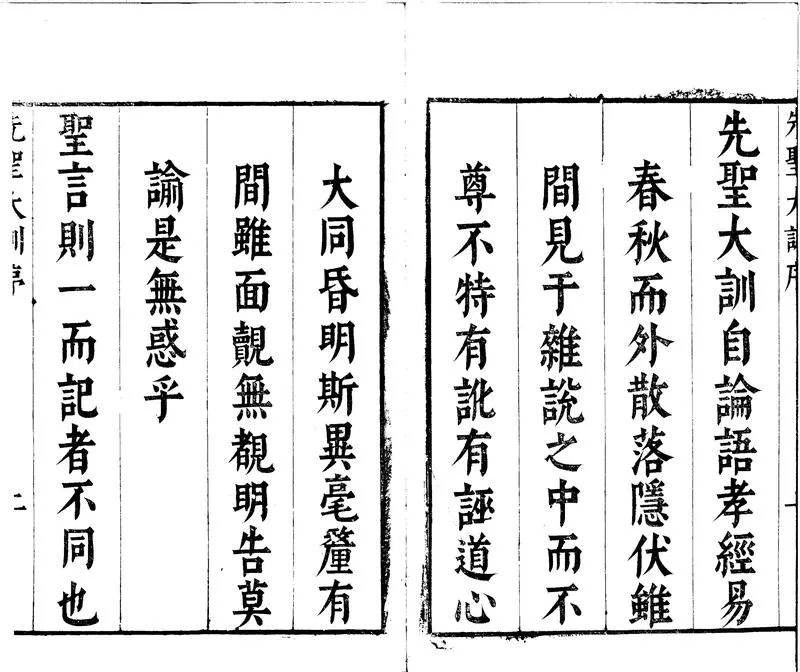 先聖大訓序
先聖大訓自論語孝經易
春秋而外散落隱伏雖
間見于雜說之中而不
尊不特有訛有誣道心
大同昏明斯異毫釐有
間雖面覿無覩明告莫
諭是無惑乎
聖言則一而記者不同也
先聖大訓序